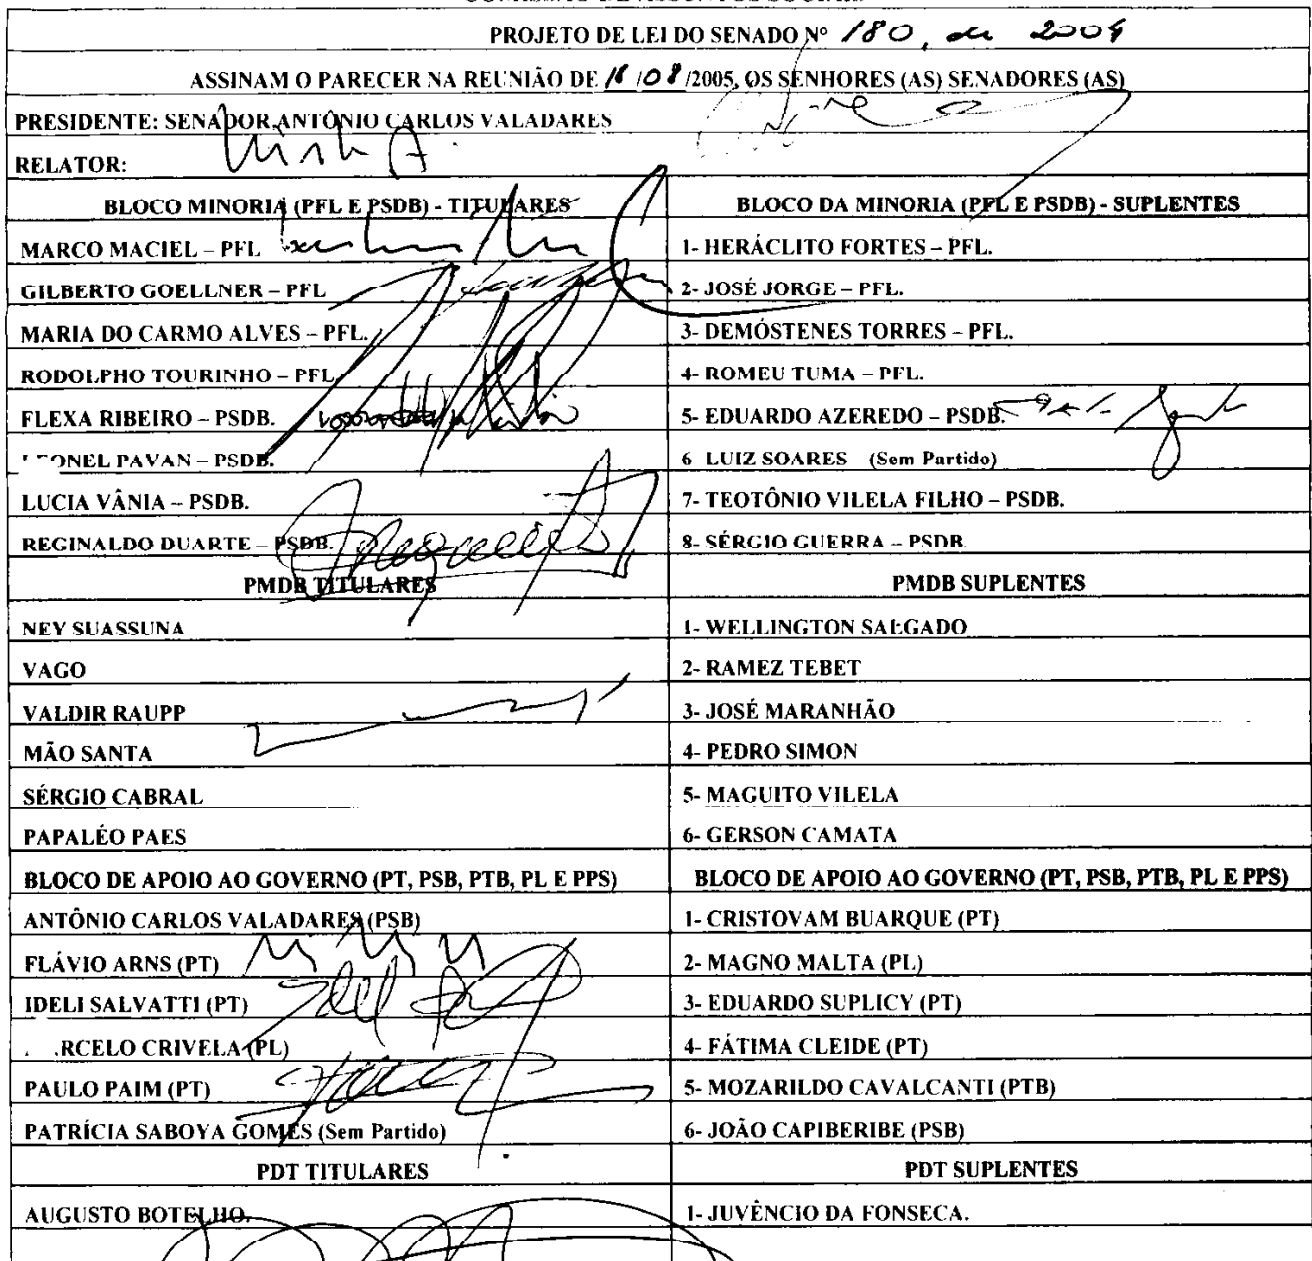 PROJETO DE LEI DO SENADO Nº 180, de 2004
ASSINAM O PARECER NA REUNIÃO DE 18/08/2005, OS SENHORES (AS) SENADORES (AS)
PRESIDENTE: SENADOR ANTÔNIO CARLOS VALADARES
RELATOR:
BLOCO MINORIA (PFL E PSDB) - TITULARES BLOCO DA MINORIA (PFL E PSDB) - SUPLENTES
MARCO MACIEL – PFL 1- HERÁCLITO FORTES – PFL.
GILBERTO GOELLNER – PFL 2- JOSÉ JORGE – PFL.
MARIA DO CARMO ALVES – PFL. 3- DEMÓSTENES TORRES – PFL.
RODOLPHO TOURINHO – PFL 4- ROMEU TUMA – PFL.
FLEXA RIBEIRO – PSDB. 5- EDUARDO AZEREDO – PSDB.
LEONEL PAVAN – PSDB. 6 LUIZ SOARES (Sem Partido)
LUCIA VÂNIA – PSDB. 7- TEOTÔNIO VILELA FILHO – PSDB.
REGINALDO DUARTE – PSDB. 8- SÉRGIO GUERRA – PSDB
PMDB TITULARES PMDB SUPLENTES
NEY SUASSUNA 1- WELLINGTON SALGADO
VAGO 2- RAMEZ TEBET
VALDIR RAUPP 3- JOSÉ MARANHÃO
MÃO SANTA 4- PEDRO SIMON
SÉRGIO CABRAL 5- MAGUITO VILELA
PAPALÉO PAES 6- GERSON CAMATA
BLOCO DE APOIO AO GOVERNO (PT, PSB, PTB, PL E PPS) BLOCO DE APOIO AO GOVERNO (PT, PSB, PTB, PL E PPS)
ANTÔNIO CARLOS VALADARES (PSB) 1- CRISTOVAM BUARQUE (PT)
FLÁVIO ARNS (PT) 2- MAGNO MALTA (PL)
IDELI SALVATTI (PT) 3- EDUARDO SUPLICY (PT)
RCELO CRIVELA (PL) 4- FÁTIMA CLEIDE (PT)
PAULO PAIM (PT) 5- MOZARILDO CAVALCANTI (PTB)
PATRÍCIA SABOYA GOMES (Sem Partido) 6- JOÃO CAPIBERIBE (PSB)
PDT TITULARES PDT SUPLENTES
AUGUSTO BOTELHO. 1- JUVÊNCIO DA FONSECA.